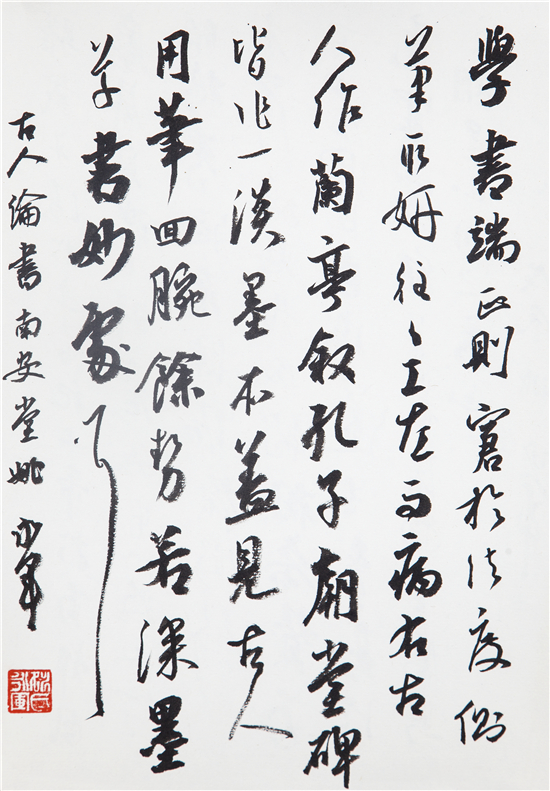 學書端正則窘於法度側
筆取妍往々工左而病右古
人作蘭亭叙孔子廟堂碑
皆作一淡墨本蓋見古人
用筆回腕餘勢若深墨
草書妙處耳
古人論書南安堂姚永軍